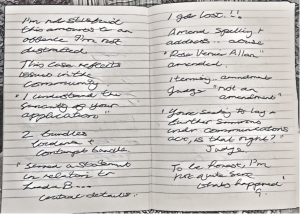 I'm not satisfied
this amounts to an
offence I'm not
distracted
This case reflects
issues in the
community
"I understand the
sincerity of your
application"
2 bundles
evidence +
contempt bundle
"served a statement
in relation to
Linda B
contact details
I get lost!!
Amend Spelling +
address
"Rose Vernie Allan"
amended
amendment
Judge "not an
amendment"
"Youre seeking to lay a
further summons
under communications
act, is that right?"
Judge
To be honest, I'm
not quite sure
whats happened